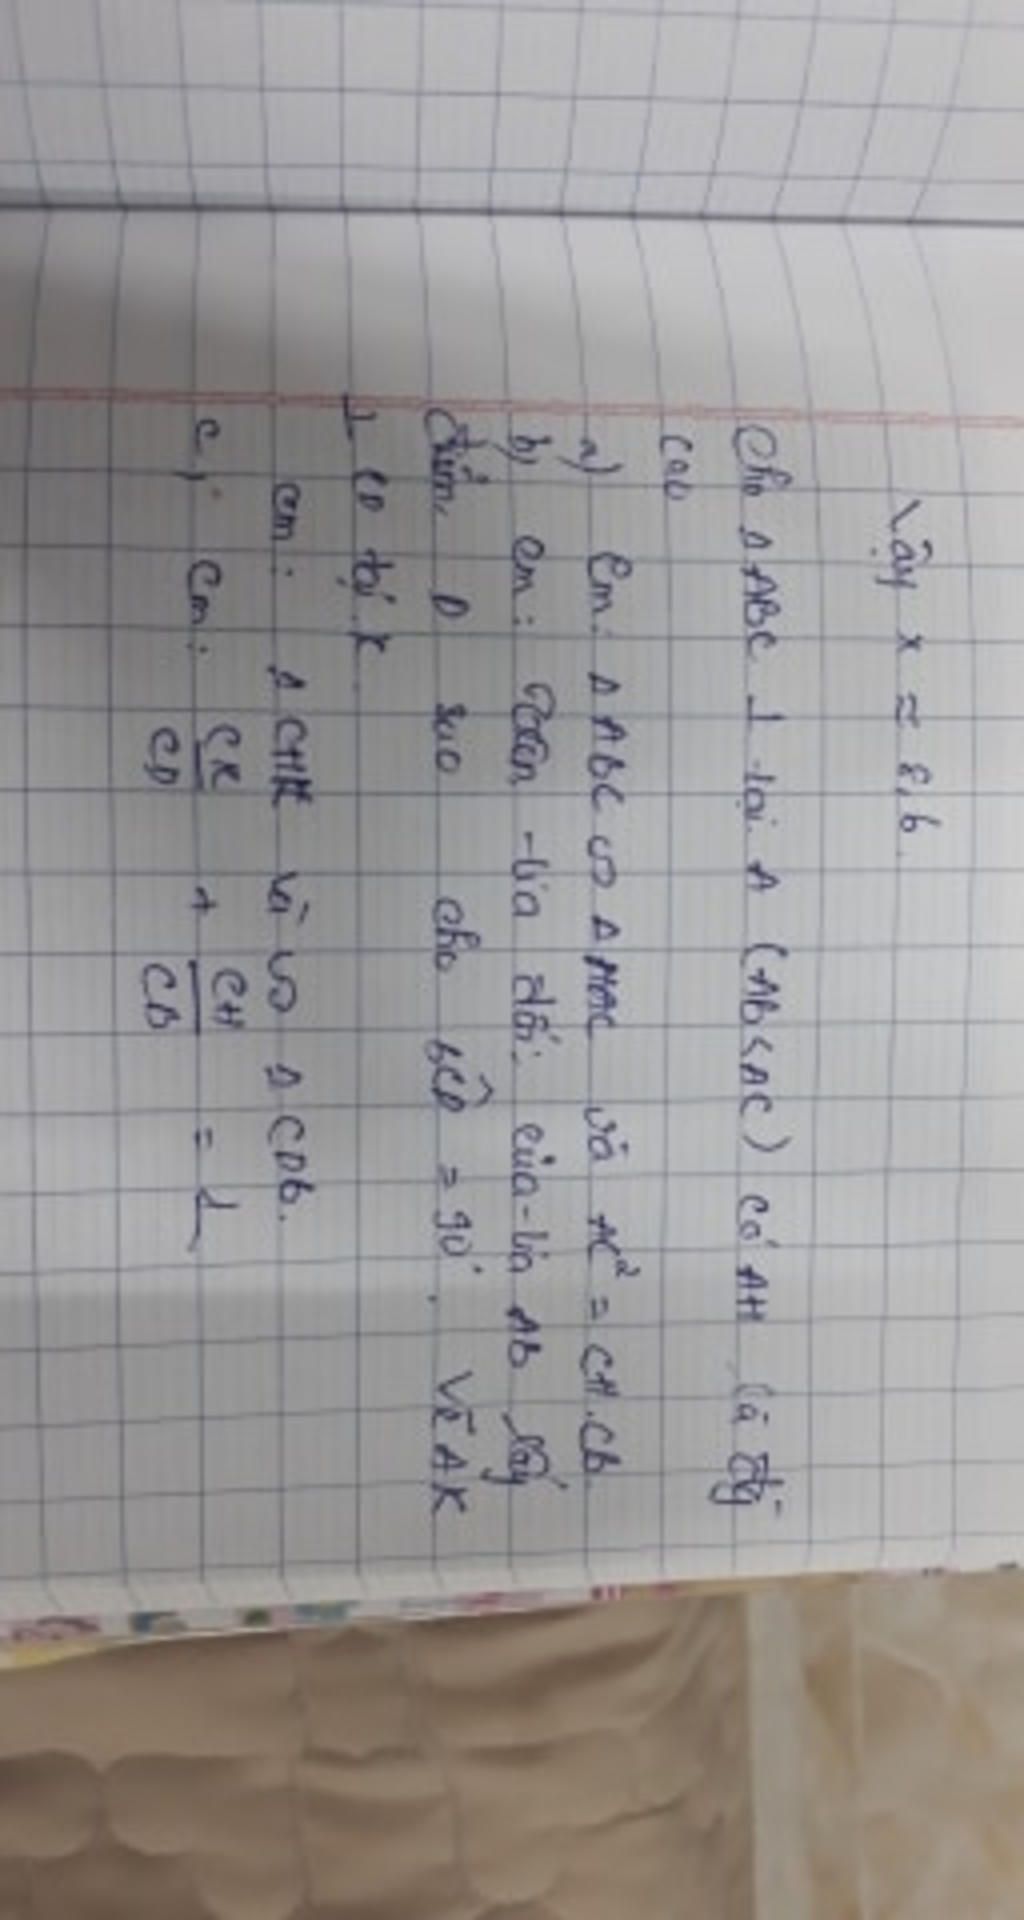 Vậy x ≈ 8,6.
Cho Δ ABC ⊥ tại A (AB<AC) có AH là đg
cao
a) Cm: Δ ABC ∽ Δ HAC và AC² = CH.CB.
b) cm: Trên tia đối của tia AB lấy
điểm D sao cho BĈD = 90°. Vẽ AK
⊥ CD tại K.
cm: Δ CHK và ∽ Δ CDB.
c, Cm: CK/CD + CH/CB = 1